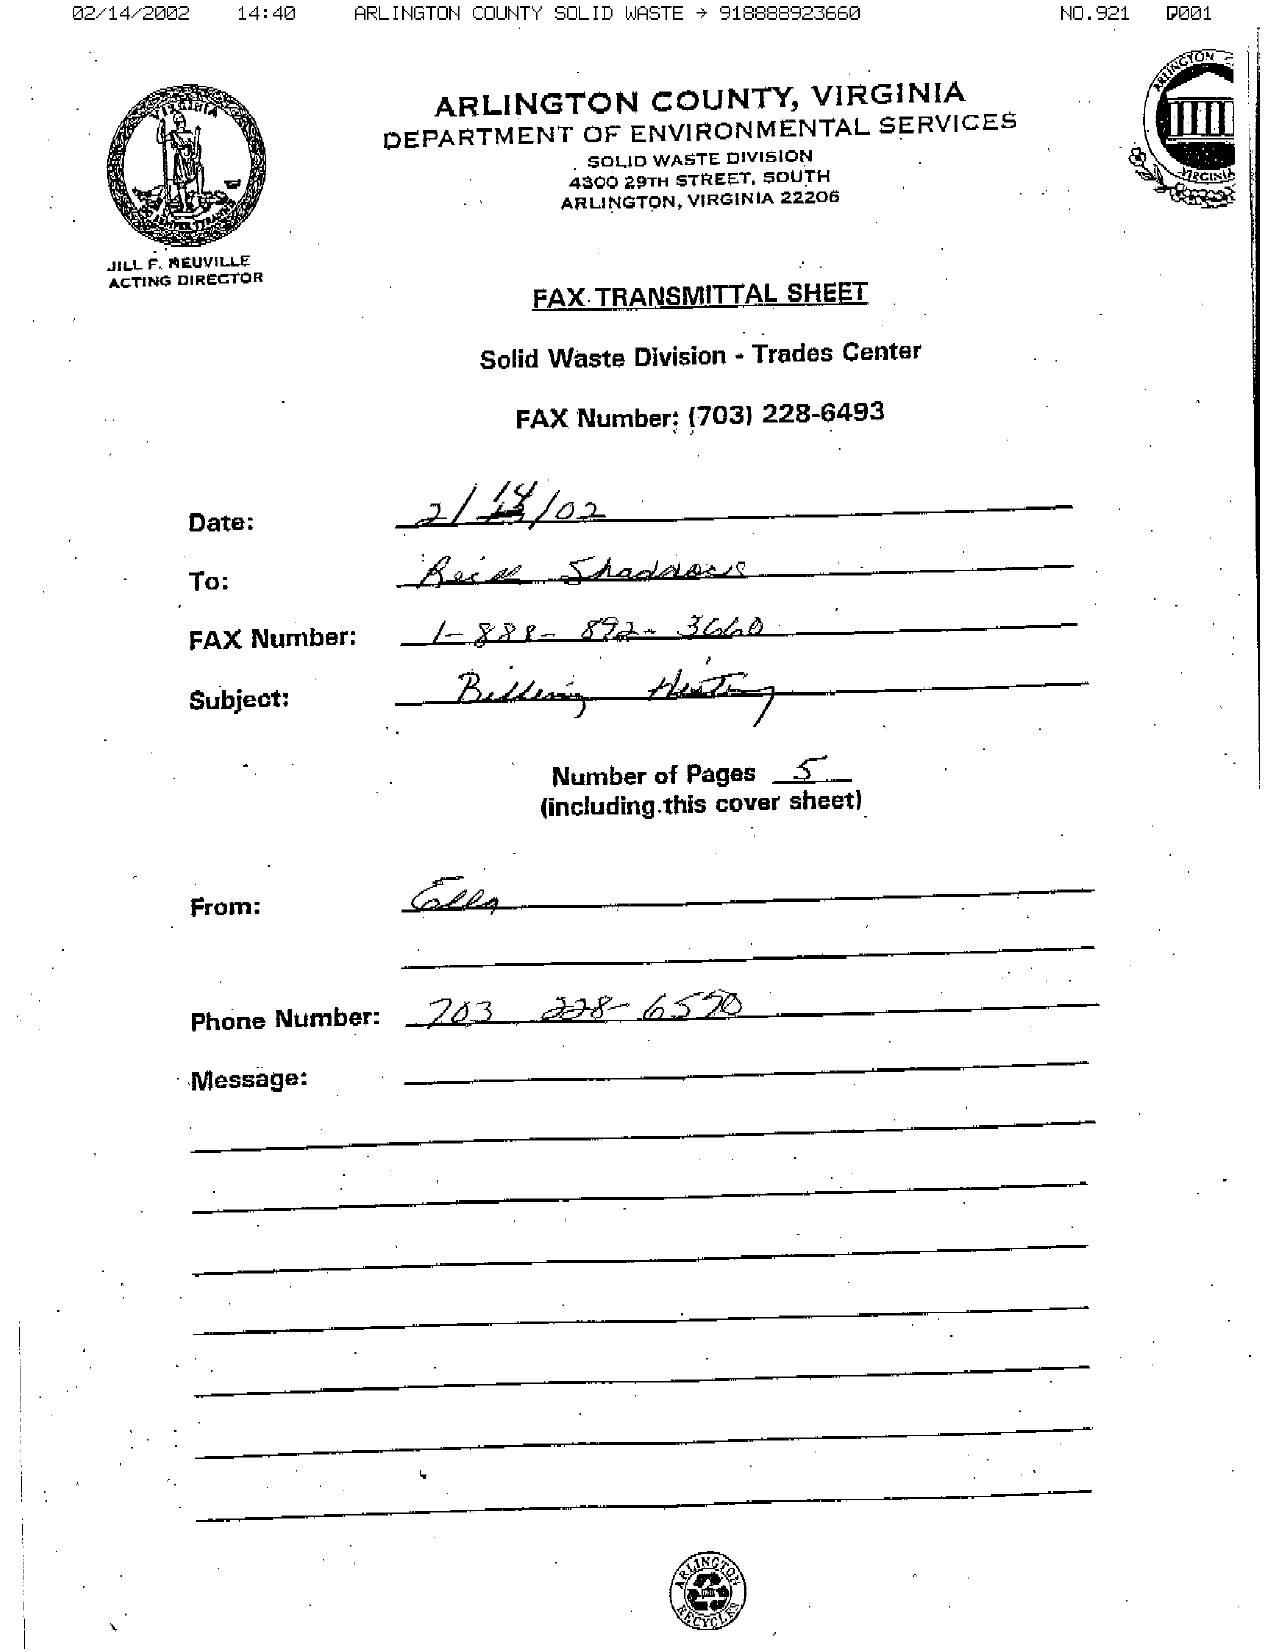 02/14/2002 14:40 ARLINGTON COUNTY SOLID WASTE → 918888923660 NO.921 P001
ARLINGTON COUNTY, VIRGINIA
DEPARTMENT OF ENVIRONMENTAL SERVICES
SOLID WASTE DIVISION
4300 29TH STREET, SOUTH
ARLINGTON, VIRGINIA 22206
VIRGINIA
ARLINGTON
VIRGINIA
JILL F. NEUVILLE
ACTING DIRECTOR
FAX TRANSMITTAL SHEET
Solid Waste Division - Trades Center
FAX Number: (703) 228-6493
Date: 2/14/02
To: Shaddows
FAX Number: 1-888-892-3660
Subject: Billing History
Number of Pages 5
(including this cover sheet)
From: Ella
Phone Number: 703 228-6570
Message:
ARLINGTON
RECYCLES